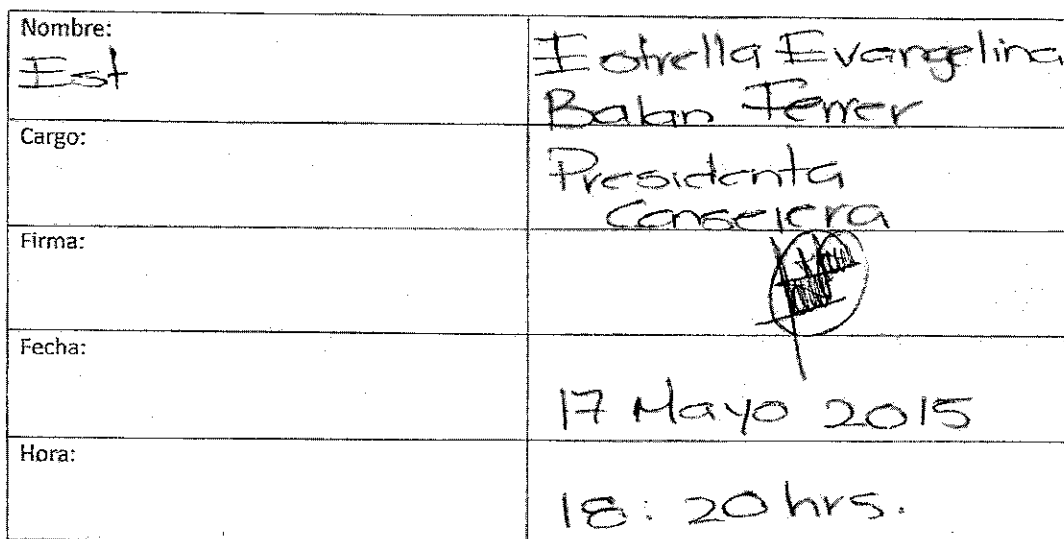 Nombre:
Est
Estrella Evangelina
Balan Ferrer
Cargo:
Presidenta
Consejera
Firma:
Fecha:
17 Mayo 2015
Hora:
18:20 hrs.